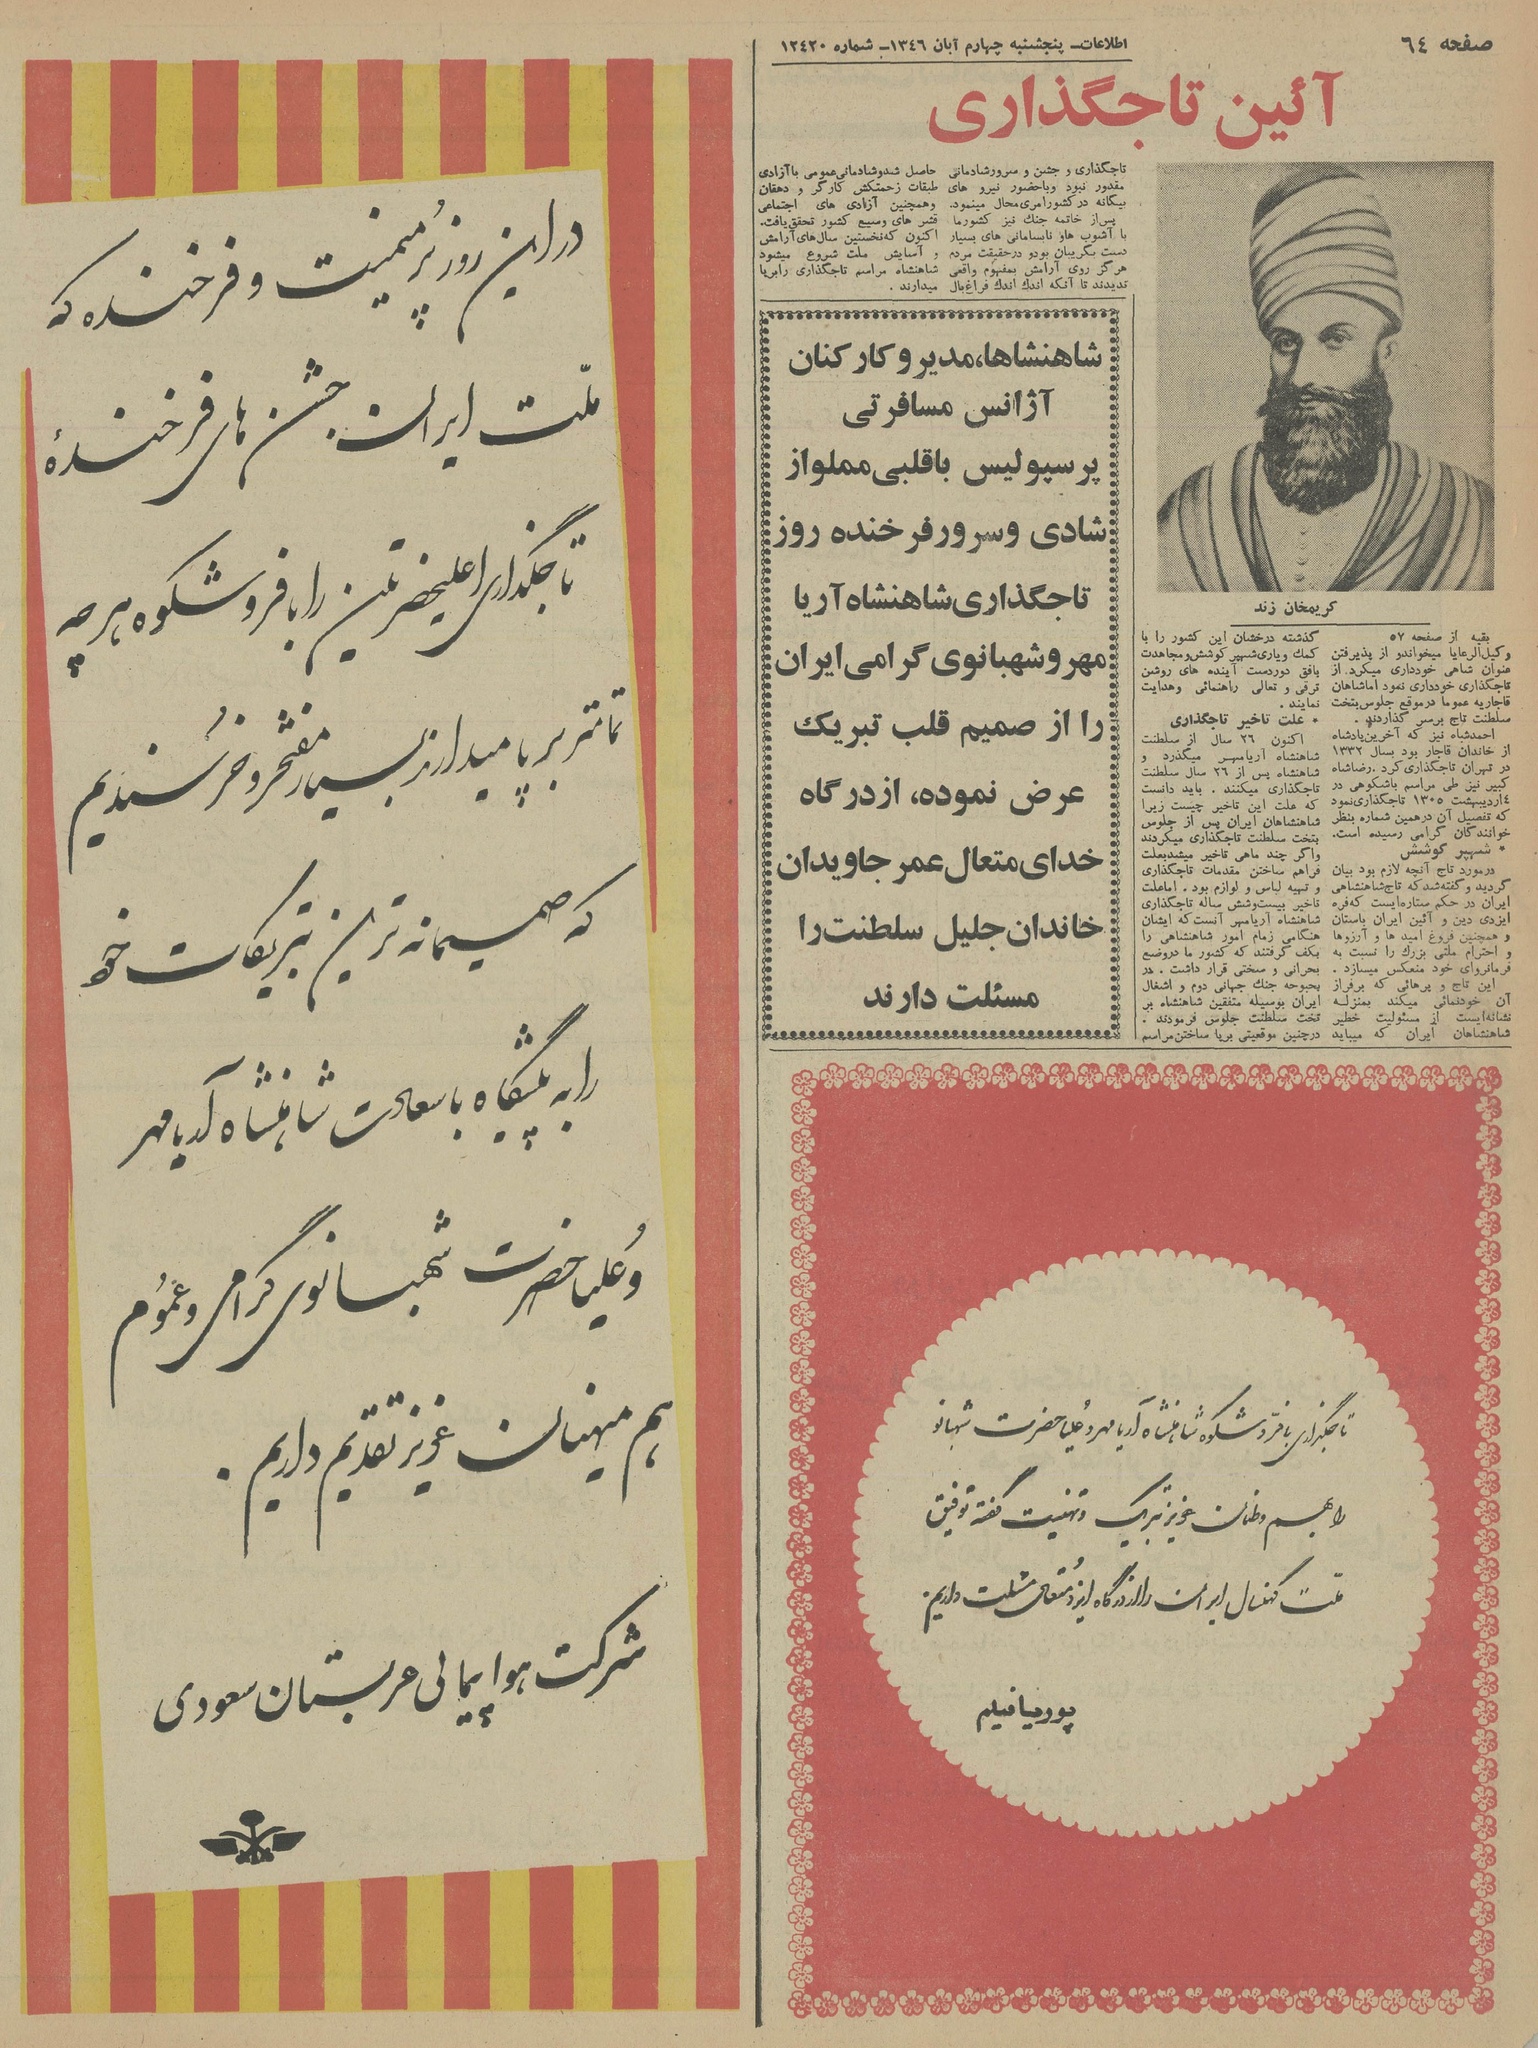 صفحه ٦٤
اطلاعات- پنجشنبه چهارم آبان ١٣٤٦- شماره ١٢٤٢٠
آئین تاجگذاری
کریمخان زند
بقیه از صفحه ٥٧
وکیل‌الرعایا میخواندو از پذیرفتن
عنوان شاهی خودداری میکرد. از
تاجگذاری خودداری نمود اماشاهان
قاجاریه عموما درموقع جلوس بتخت
سلطنت تاج برسر گذاردند .
احمدشاه نیز که آخرین‌پادشاه
از خاندان قاجار بود بسال ١٣٣٢
در تهران تاجگذاری کرد .رضاشاه
کبیر نیز طی مراسم باشکوهی در
٤اردیبهشت ١٣٠٥ تاجگذاری‌نمود
که تفصیل آن درهمین شماره بنظر
خوانندگان گرامی رسیده است.
* شهپر کوشش
درمورد تاج آنچه لازم بود بیان
گردید و گفته‌شد که تاج‌شاهنشاهی
ایران در حکم ستاره‌ایست که‌فره
ایزدی دین و آئین ایران باستان
و همچنین فروغ امید ها و آرزوها
و احترام ملتی بزرك را نسبت به
فرمانروای خود منعکس میسازد .
این تاج و پرهائی که برفراز
آن خودنمائی میکند بمنزلـه
نشانه‌ایست از مسئولیت خطیر
شاهنشاهان ایران که میباید
گذشته درخشان این کشور را با
کمك ویاری‌شهپر کوشش‌ومجاهدت
بافق دوردست آینده های روشن
ترقی و تعالی راهنمائی وهدایت
نمایند .
* علت تاخیر تاجگذاری
اکنون ٢٦ سال از سلطنت
شاهنشاه آریامهـر میگذرد و
شاهنشاه پس از ٢٦ سال سلطنت
تاجگذاری میکنند . باید دانست
که علت این تاخیر چیست زیرا
شاهنشاهان ایران پس از جلوس
بتخت سلطنت تاجگذاری میکردند
واگر چند ماهی تاخیر میشدبعلت
فراهم ساختن مقدمات تاجگذاری
و تهیه لباس و لوازم بود . اماعلت
تاخیر بیست‌وشش ساله تاجگذاری
شاهنشاه آریامهر آنست که ایشان
هنگامی زمام امور شاهنشاهی را
بکف گرفتند که کشور ما دروضع
بحرانی و سختی قرار داشت . در
بحبوحه جنك جهانی دوم و اشغال
ایران بوسیله متفقین شاهنشاه بر
تخت سلطنت جلوس فرمودند .
درچنین موقعیتی برپا ساختن‌مراسم
تاجگذاری و جشن و سرورشادمانی
مقدور نبود وباحضور نیرو های
بیگانه در کشورامری‌محال مینمود.
پس‌از خاتمه جنك نیز کشورما
با آشوب هاو نابسامانی های بسیار
دست بگریبان بودو درحقیقت مردم
هرگز روی آرامش بمفهوم واقعی
ندیدند تا آنکه اندك اندك فراغ‌بال
حاصل شدوشادمانی‌عمومی باآزادی
طبقات زحمتکش کارگر و دهقان
وهمچنین آزادی های اجتماعی
قشر های وسیع کشور تحقق‌یافت.
اکنون که‌نخستین سال‌های‌آرامش
و آسایش ملت شروع میشود
شاهنشاه مراسم تاجگذاری رابرپا
میدارند .
شاهنشاها،مدیر و کارکنان
آژانس مسافرتی
پرسپولیس باقلبی مملواز
شادی وسرورفرخنده روز
تاجگذاری شاهنشاه آریا
مهر و شهبانوی گرامی ایران
را از صمیم قلب تبریك
عرض نموده، ازدرگاه
خدای متعال عمر جاویدان
خاندان جلیل سلطنت را
مسئلت دارند
تاجگذاری بافروشکوه شاهنشاه آریامهر و علیاحضرت شهبانو
را بهم وطنان عزیز تبریک و تهنیت گفته توفیق
ملت کهنسال ایران را از درگاه ایزد متعال مسئلت داریم.
پوریا فیلم
در این روز پُر میمنت و فرخنده که
ملّت ایران جشن های فرخندهٔ
تاجگذاری اعلیحضرتین را با فر و شکوه هر چه
تمامتر بر پا میدارند بسیار مفتخر و خُرسندیم
که صمیمانه ترین تبریکات خود
را به پیشگاه با سعادت شاهنشاه آریامهر
و عُلیاحضرت شهبانوی گرامی و عمُوم
هم میهنان عزیز تقدیم داریم .
شرکت هواپیمائی عربستان سعودی